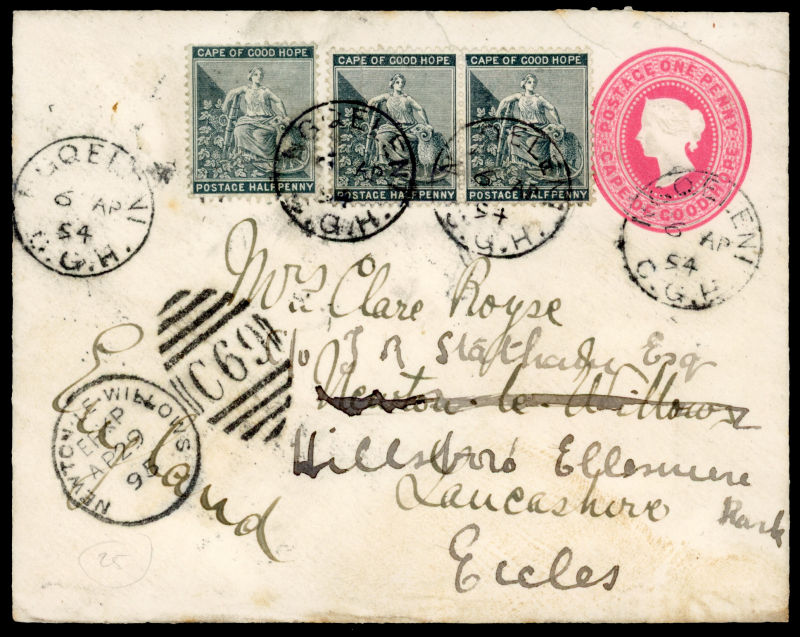 CAPE OF GOOD HOPE
POSTAGE HALFPENNY
CAPE OF GOOD HOPE
POSTAGE HALFPENNY
CAPE OF GOOD HOPE
POSTAGE HALFPENNY
POSTAGE ONE PENNY
CAPE OF GOOD HOPE
NGQELENI
6 AP
54
C.G.H.
NGQELENI
AP
C.G.H.
NGQELENI
6 AP
54
C.G.H.
NGQELENI
6 AP
54
C.G.H.
Mrs Clare Royse
c/o J R Statham Esq
Newton-le-Willows
Hillsboro' Ellesmere
Park
Lancashire
Eccles
England
C69
NEWTON-LE-WILLOWS
AP 29
95
25